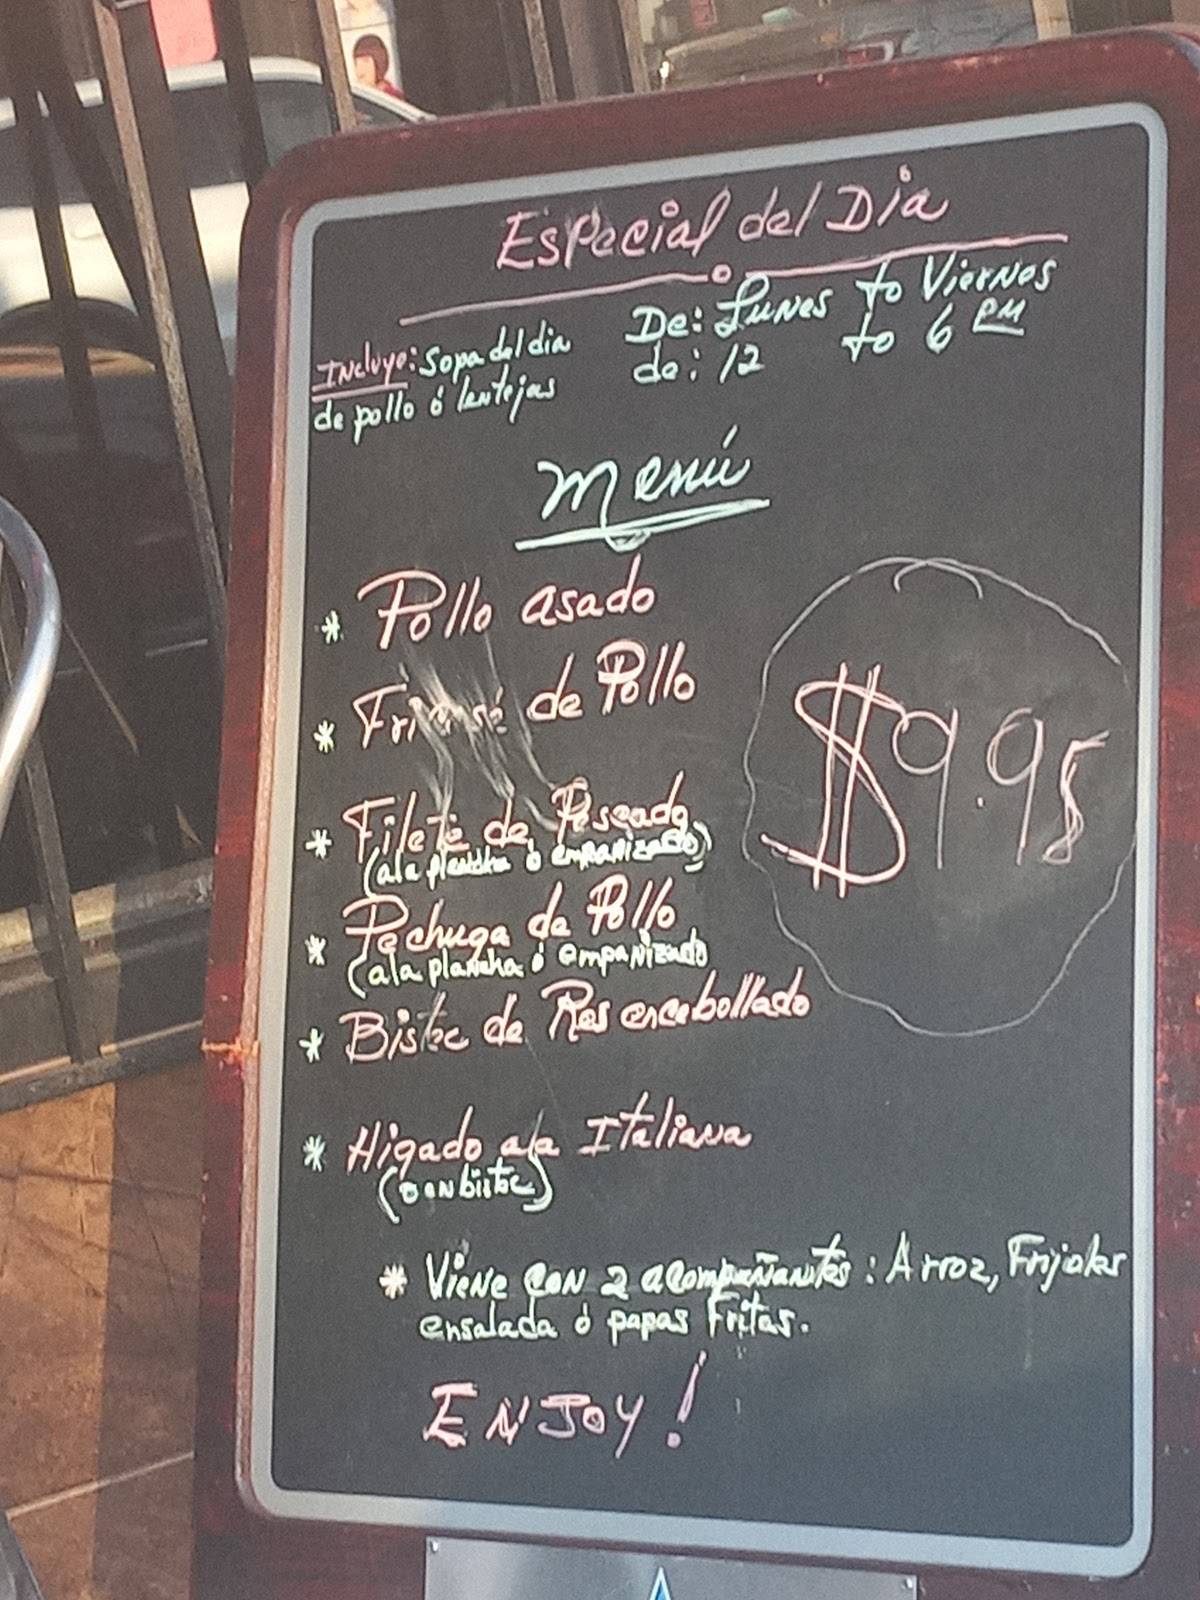 Especial del Dia
Incluye: Sopa del dia
de pollo ó lentejas
De: Lunes to Viernes
de: 12 to 6 PM
Menú
* Pollo asado
* de Pollo
* Filete de Pescado
(ala plancha ó empanizado)
* Pechuga de Pollo
(ala plancha ó empanizado
* Bistec de Res encebollado
* Higado ala Italiana
(con bistec)
$9.95
* Viene con 2 acompañantes: Arroz, Frijoles
ensalada ó papas Fritas.
ENJOY!